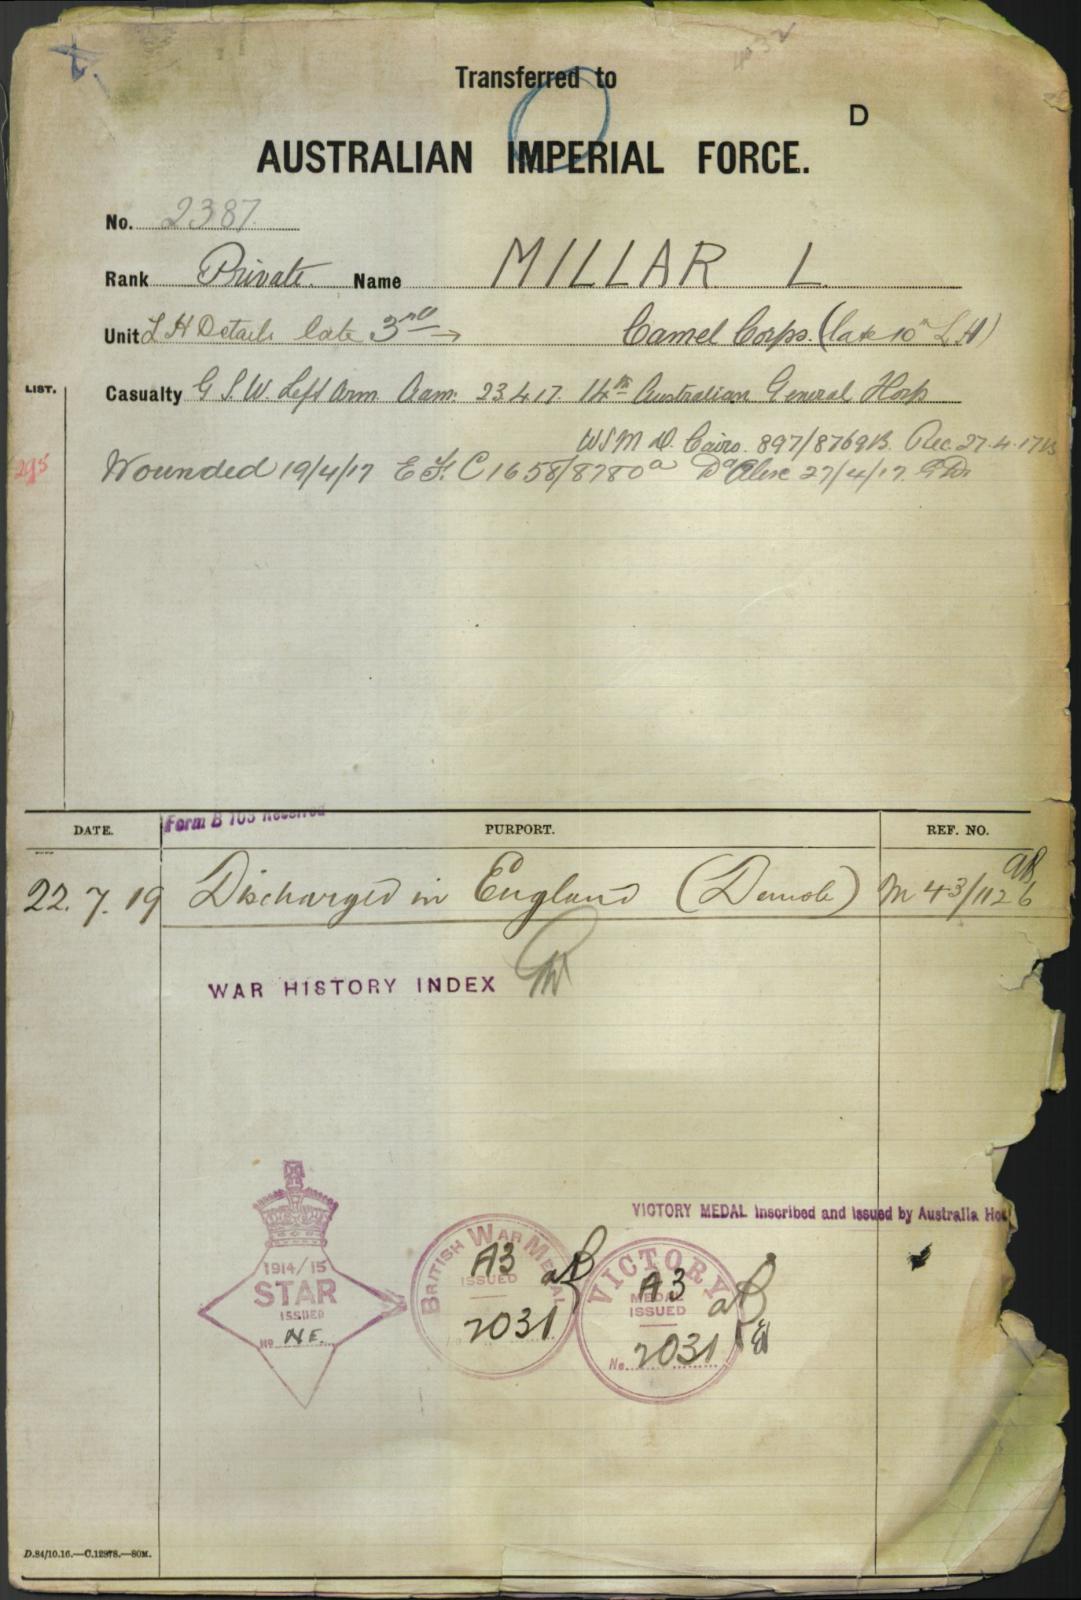 Transferred to
D
AUSTRALIAN IMPERIAL FORCE.
No. 2387
Rank Private. Name MILLAR L.
Unit L H Details late 3rd Camel Corps. (late 10th L.H)
LIST.
Casualty G.S.W. Left Arm Adm: 23.4.17. 14th Australian General Hosp
Cairo. 897/8769B. Rec. 27.4.17
Wounded 19/4/17 E.F.C 1658/8780a 27/4/17.
Form B 103 Received
DATE. PURPORT. REF. NO.
22.7.19 Discharged in England (Demob) M 43/1126
WAR HISTORY INDEX
VICTORY MEDAL Inscribed and Issued by Australia Ho
1914/15
STAR
ISSUED
No N.E.
BRITISH WAR MEDAL
A3
ISSUED
2031
VICTORY
A3
MEDAL
ISSUED
No. 2031
D.84/10.16.—C.12878.—80M.